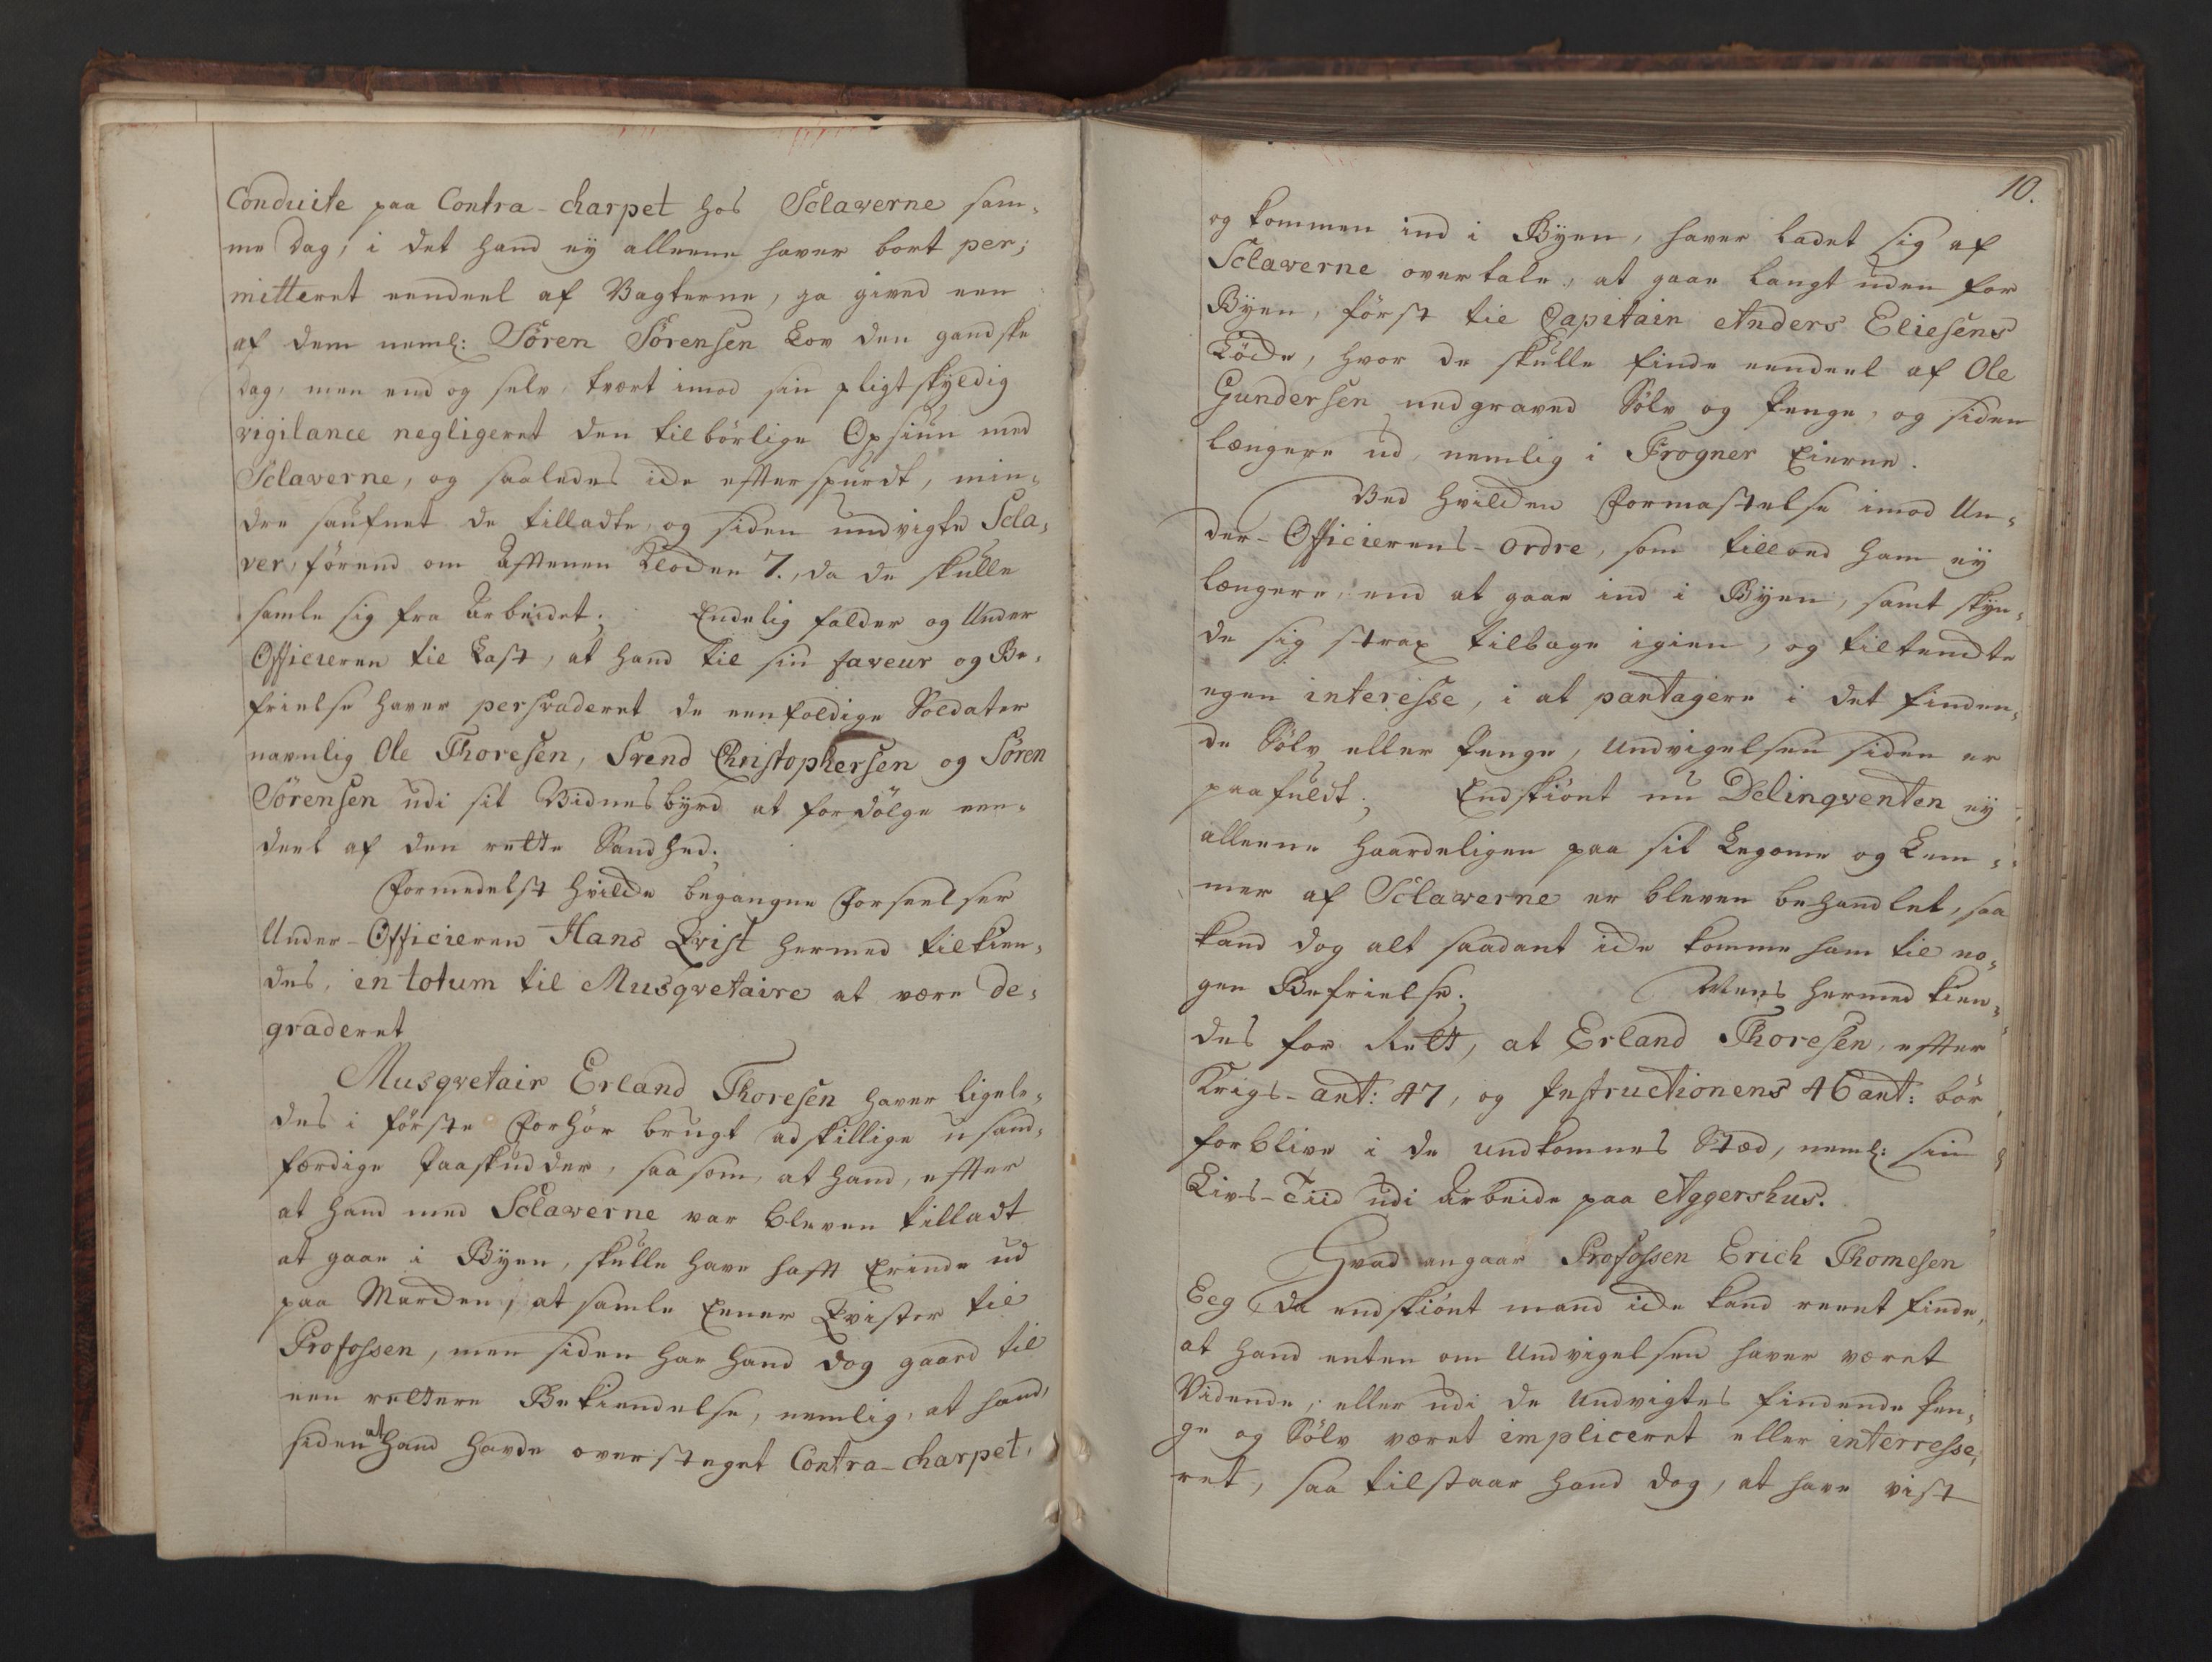 Conduite paa Contra-charpet hos Sclaverne sam-
me Dag; i det hand ey alleene haver bort per-
mitteret eendeel af Vagterne, ja gived een
af dem neml: Sören Sörensen Lov den gandske
Dag, men end og selv tvert imod sin pligtskyldig
vigilance negligeret den tilbörlige Opsiun med
Sclaverne, og saaledes icke efterspurdt, min-
dre saufnet de tilladte, og siden undvigte Scla-
ver, förend om Aftenen Klocken 7., da de skulle
samle sig fra Arbeidet. Endelig falder og Under
Officieren til Last, at hand til sin faveur og Be-
frielse haver persvaderet de eenfoldige Soldater
navnlig Ole Thoresen, Svend Christophersen og Sören
Sörensen udi sit Vidnesbyrd at fordölge een-
deel af den rette Sandhed.
Formedelst hvilcke begangne Forseelser
Under-Officieren Hans Qvist hermed tilkien-
des, in totum til Musqvetaire at være de-
graderet
Musqvetair Erland Thoresen haver ligele-
des i förste Forhör brugt adskillige usand-
færdige Paaskudder, saasom, at hand, efter
at hand med Sclaverne var bleven tilladt
at gaae i Byen, skulle have haft Erinde ud
paa Marcken, at samle Eener Qvister til
Profossen, men siden har hand dog gaaed til
een rettere Bekiendelse, nemlig, at hand,
siden at hand havde oversteget Contra-charpet,
10.
og kommen ind i Byen, haver ladet sig af
Sclaverne overtale, at gaae langt uden for
Byen, först til Capitain Anders Eliesens
Löcke, hvor de skulle finde eendeel af Ole
Gundersen nedgraved Sölv og Penge, og siden
længere ud, nemlig i Frogner Eierne.
Ved hvilcken Formastelse imod Un-
der-Officierens-ordre, som tillod ham ey
længere, end at gaae ind i Byen, samt skyn-
de sig strax tilbage igien, og tiltenckte
egen interesse, i at partagere i det finden-
de Sölv eller Penge, Undvigelsen siden er
paafuldt. Endskiönt nu Delinqventen ey
alleene haardeligen paa sit Legome og Lem-
mer af Sclaverne er bleven behandlet, saa
kand dog alt saadant icke komme ham til no-
gen Befrielse. Mens hermed kien-
des for Rett, at Erland Thoresen, efter
Krigs-art: 47, og Instructionens 46 art: bör
forblive i de undkomnes Stæd, neml: sin
Livs-Tiid udi Arbeide paa Aggershus.
Hvad angaar Profossen Erich Thomesen
Eeg, da endskiönt mand icke kand reent finde,
at hand enten om Undvigelsen haver været
Vidende, eller udi de Undvigtes findende Pen-
ge og Sölv været impliceret eller interresse-
ret, saa tilstaar hand dog, at have vist